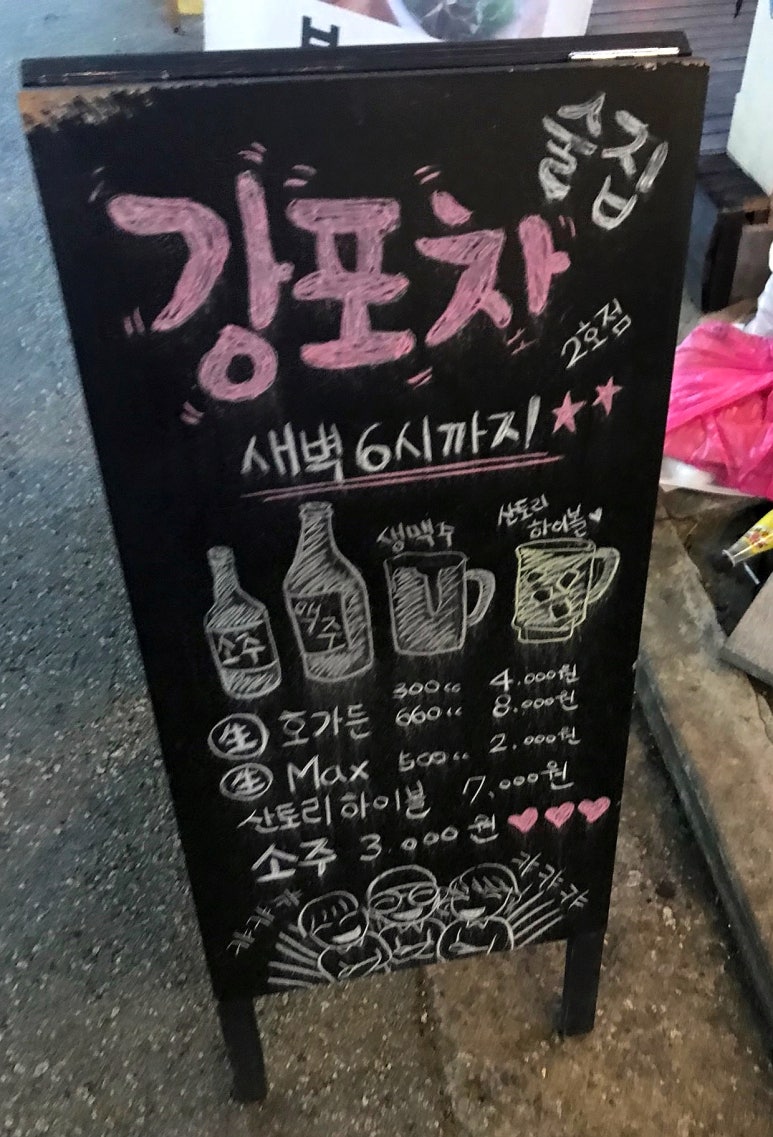 술집
강포차
2호점
새벽 6시까지
소주
맥주
생맥주
산토리
하이볼
生 호가든 300cc 4.000원
660cc 8.000원
生 Max 500cc 2.000원
산토리 하이볼 7,000원
소주 3.000원
캬캬캬
캬캬캬